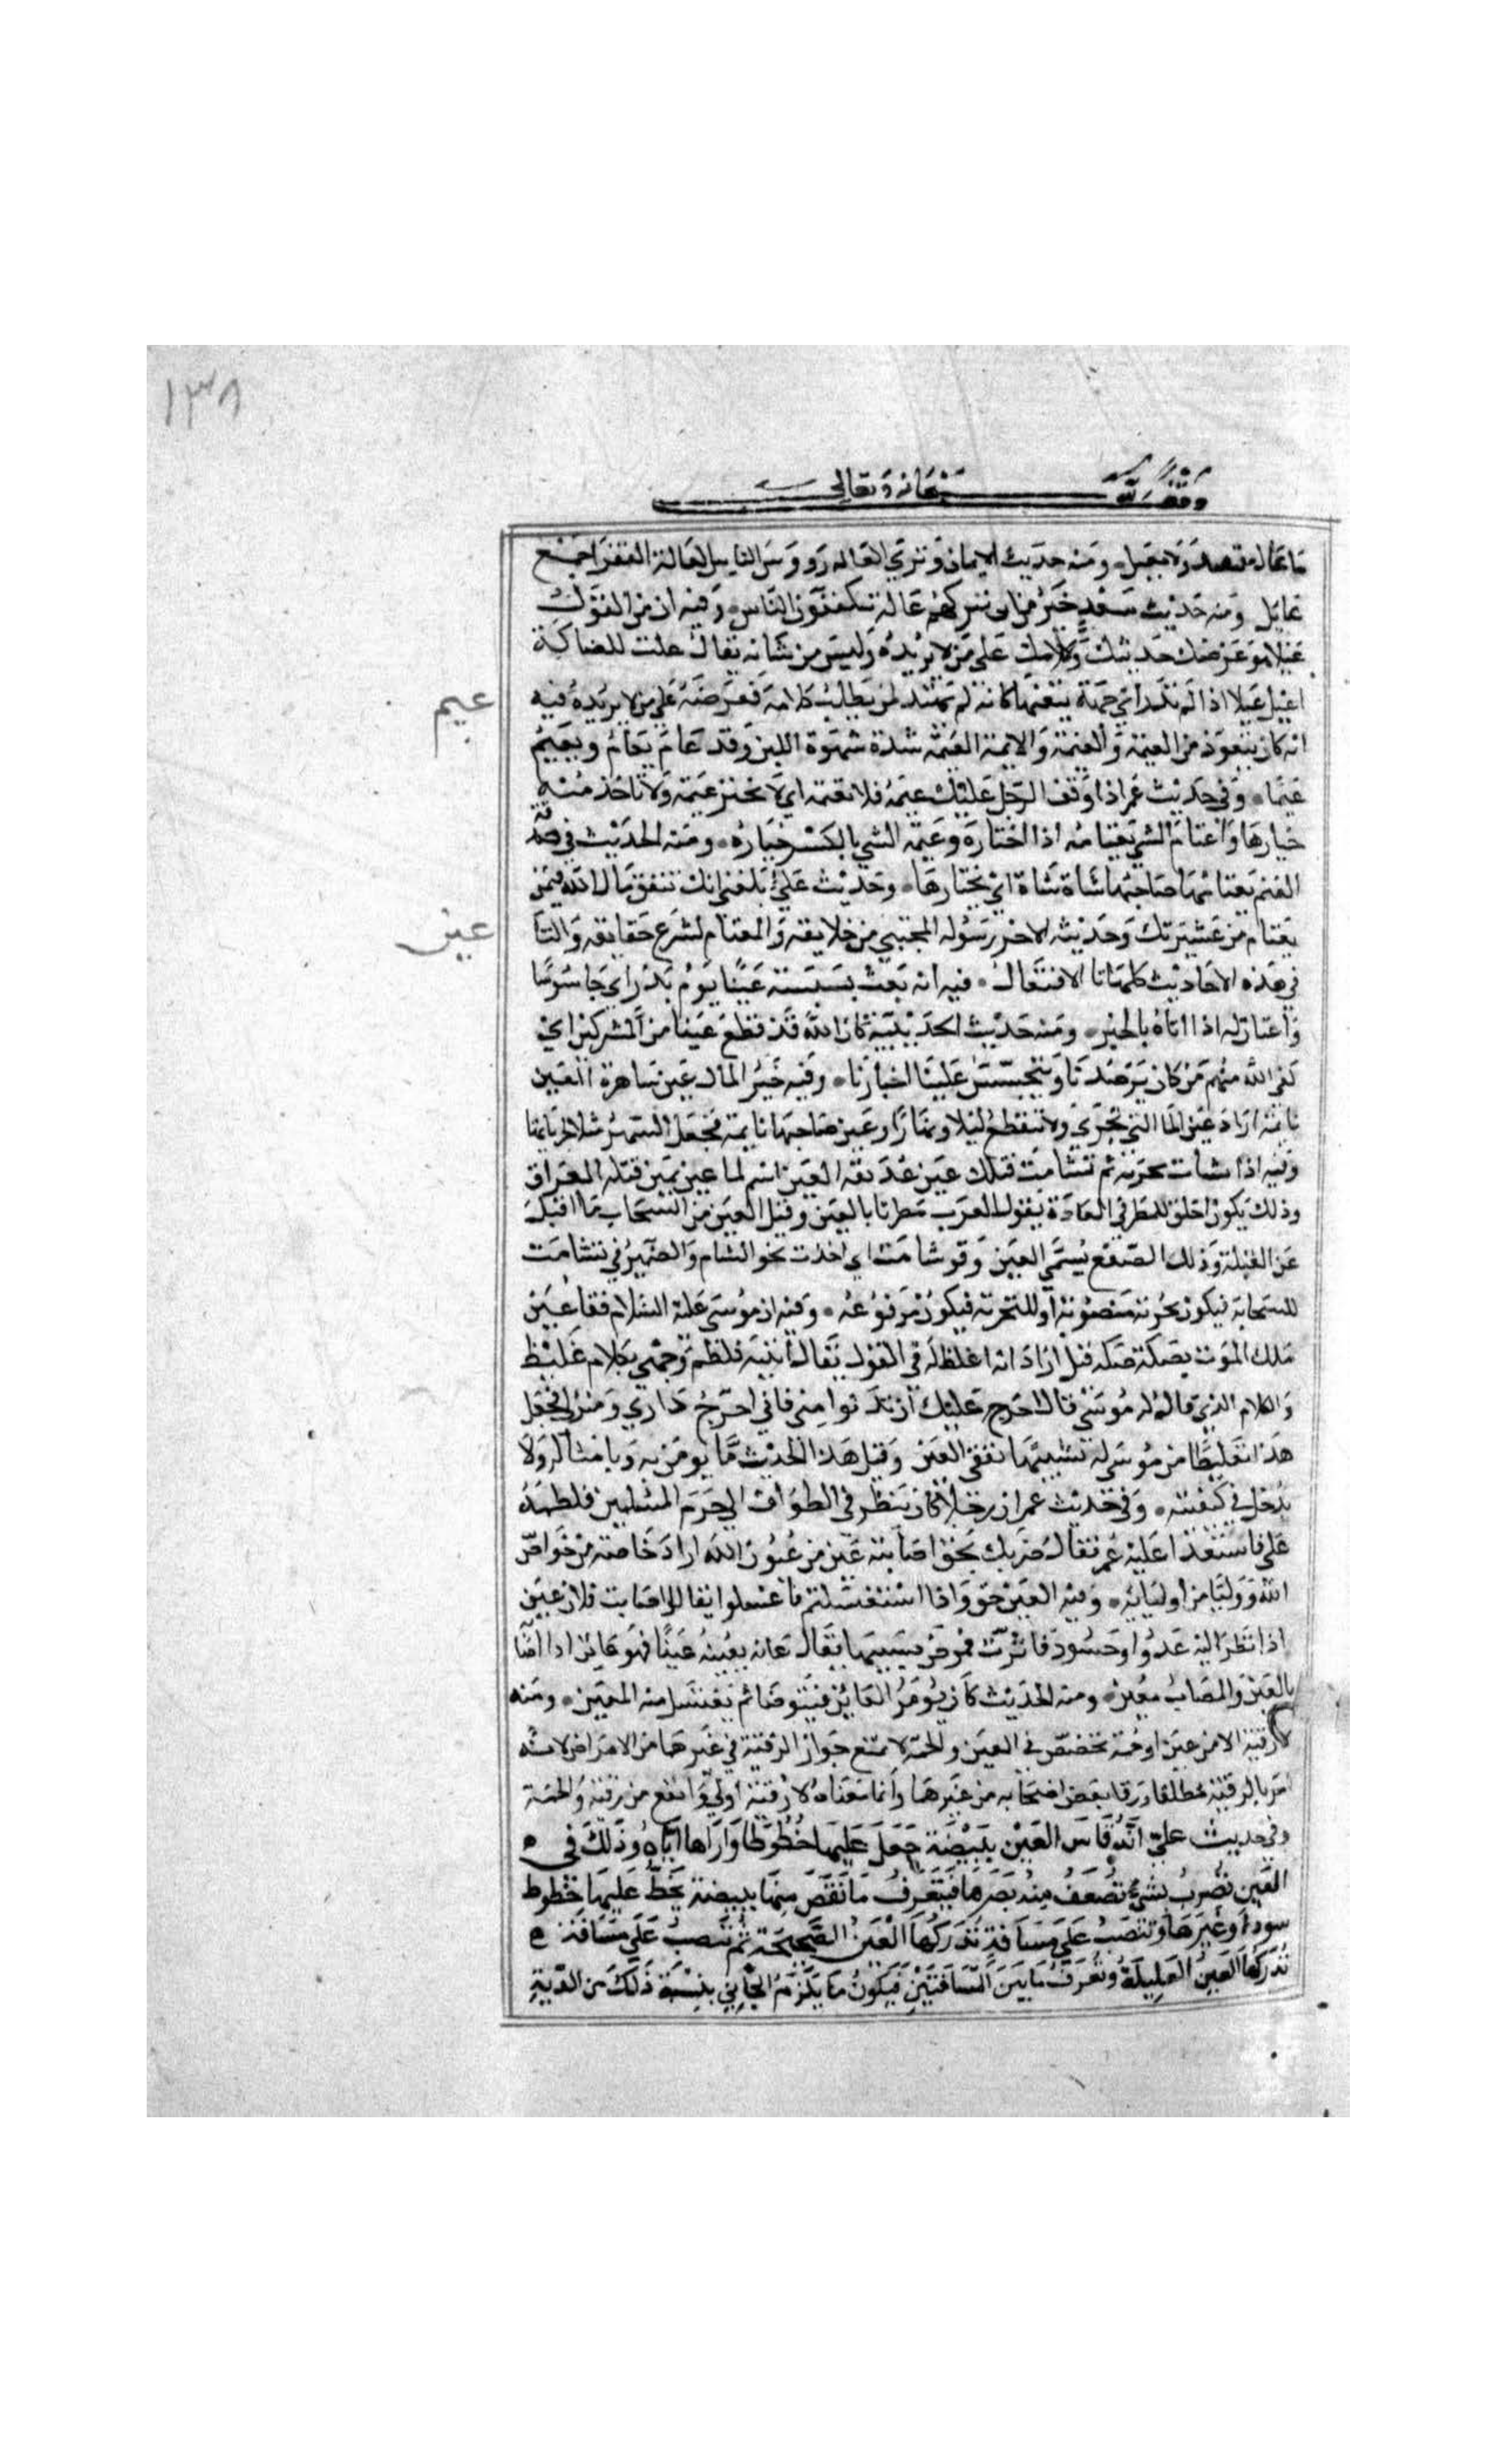 ١٣٨
وقف لله سبحانه وتعالى
ما عال مقتصد ولا يعيل • ومنه حديث الايمان وترى العالة رووس الناس العالة الفقرا جمع
عايل ومنه حديث سعد خير من ان تتركهم عالة يتكففون الناس • وفيه ان من القول
عيلا هو عرضك حديثك وكلامك على من لا يريده وليس من شانه يقال علت للضالة
عيم
اعيل عيلا اذا لم تدر اي جهة يبغيها كانه لم يهتد لمن يطلب كلامه فعرضه على من لا يريده فيه
انه كان يتعوذ من العيمة والغيمة والايمة العيمة شدة شهوة اللبن وقد عام يعام ويعيم
عيما • وفي حديث عمر اذا وقف الرجل عليك غنمه فلا تعتمه اي لا تختر غنمه ولا تاخذ منه
خيارها واعتام الشي يعتامه اذا اختاره وعيمة الشي بالكسر خياره • ومنه الحديث في صدقة
الغنم يعتامها صاحبها شاة شاة اي يختارها • وحديث علي بلغني انك تنفق مال الله فيمن
عين
يعتام من عشيرتك وحديثه الاخر رسوله المجتبى من خلايقه والمعتام لشرع حقايقه والتا
في هذه الاحاديث كلها تا الافتعال • فيه انه بعث بسبسة عينا يوم بدر اي جاسوسا
واعتان له اذا اتاه بالخبر • ومنه حديث الحديبية كان الله قد قطع عينا من المشركين اي
كفى الله منهم من كان يرصدنا ويتجسس علينا اخبارنا • وفيه خير المال عين ساهرة لعين
نايمة اراد عين الما التي تجري ولا تنقطع ليلا ونهارا وعين صاحبها نايمة فجعل السهر مثلا لجريانها
وفيه اذا نشات بحرية ثم تشامت فتلك عين غديقة العين اسم لما عن يمين قبلة العراق
وذلك يكون اخلق للمطر في العادة يقول العرب مطرنا بالعين وقيل العين من السحاب ما اقبل
عن القبلة وذلك الصقع يسمى العين وقو تشامت اي اخذت نحو الشام والضمير في تشامت
للسحابة فيكون بحرية منصوبة او للبحرية فيكون مرفوعة • وفيه ان موسى عليه السلام فقا عين
ملك الموت بصكة صكه قيل اراد انه اغلظ له في القول يقال اتيته فلطم وجهي بكلام غليظ
والكلام الذي قاله له موسى قال احرج عليك ان تدنوا مني فاني احرج داري ومنزلي فجعل
هذا تغليظا من موسى له تشبيها بفقئ العين وقيل هذا الحديث مما يومن به وبامثاله ولا
يدخل في كيفيته • وفي حديث عمر ان رجلا كان ينظر في الطواف الى حرم المسلمين فلطمه
علي فاستعدا عليه عمر فقال ضربك بحق اصابته عين من عيون الله اراد خاصة من خواص
الله ووليا من اوليائه • وفيه العين حق واذا استغسلتم فاغسلوا يقال اصابت فلانا عين
اذا نظر اليه عدو او حسود فاثرت فمرض بسببها يقال عانه يعينه عينا فهو عاين اذا اصا
بالعين والمصاب معين • ومنه الحديث كان يؤمر العاين فيتوضا ثم يغتسل منه المعين • ومنه
لا رقية الا من عين او حمة تخصيص في العين والحمة لا تمنع جواز الرقية في غيرهما من الامراض لانه
امر بالرقية مطلقا ورقا بعض اصحابه من غيرها وانما معناه لا رقية اولى وانفع من رقية والحمة
وفي حديث علي انه قاس العين ببيضة جعل عليها خطوطا واراها اياه وذلك في
العين تضرب بشيء تضعف منه بصرها فيتعرف ما نقص منها ببيضة يخط عليها خطوط
سود او غيرها وتنصب على مسافة تدركها العين الصحيحة ثم تنصب على مسافة
تدركها العين العليلة وتعرف ما بين المسافتين فيكون ما يلزم الجاني بنسبة ذلك من الدية